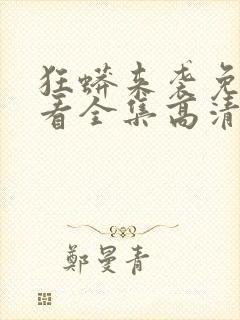 狂蟒来袭免
看全集高清
鄭曼青